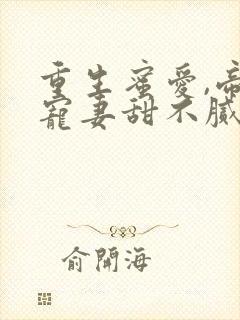 重生蜜愛,帝
寵妻甜不膩
俞開海